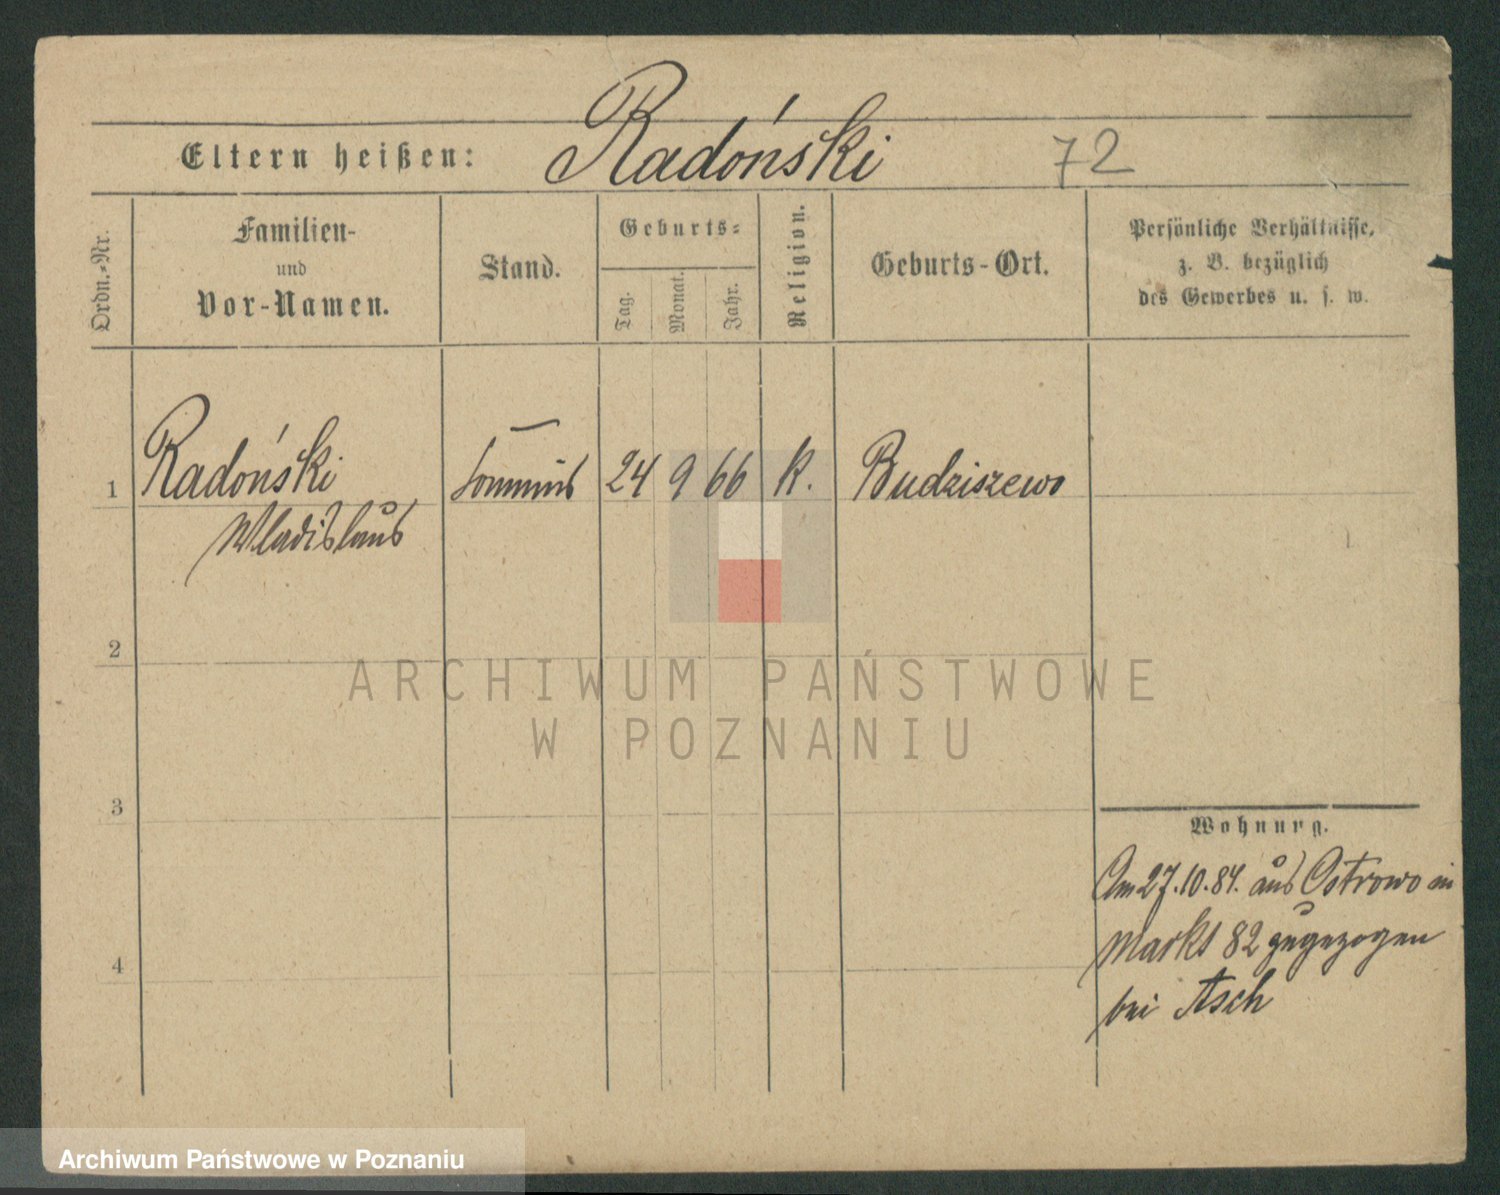 Eltern heißen: Radoński 72
Ordn.-Nr.
Familien-
und
Vor-Namen.
Stand.
Geburts-
Tag.
Monat.
Jahr.
Religion.
Geburts-Ort.
Persönliche Verhältnisse,
z. B. bezüglich
des Gewerbes u. s. w.
1 Radoński 24 9 66 K. Budziszewo
Wladislaus
2
3
4
Wohnung.
Am 27.10.84. aus Ostrowo in
Markt 82 zugezogen
bei Asch
ARCHIWUM PAŃSTWOWE
W POZNANIU
Archiwum Państwowe w Poznaniu